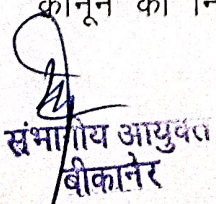 कानून का नि
संभागीय आयुक्त
बीकानेर